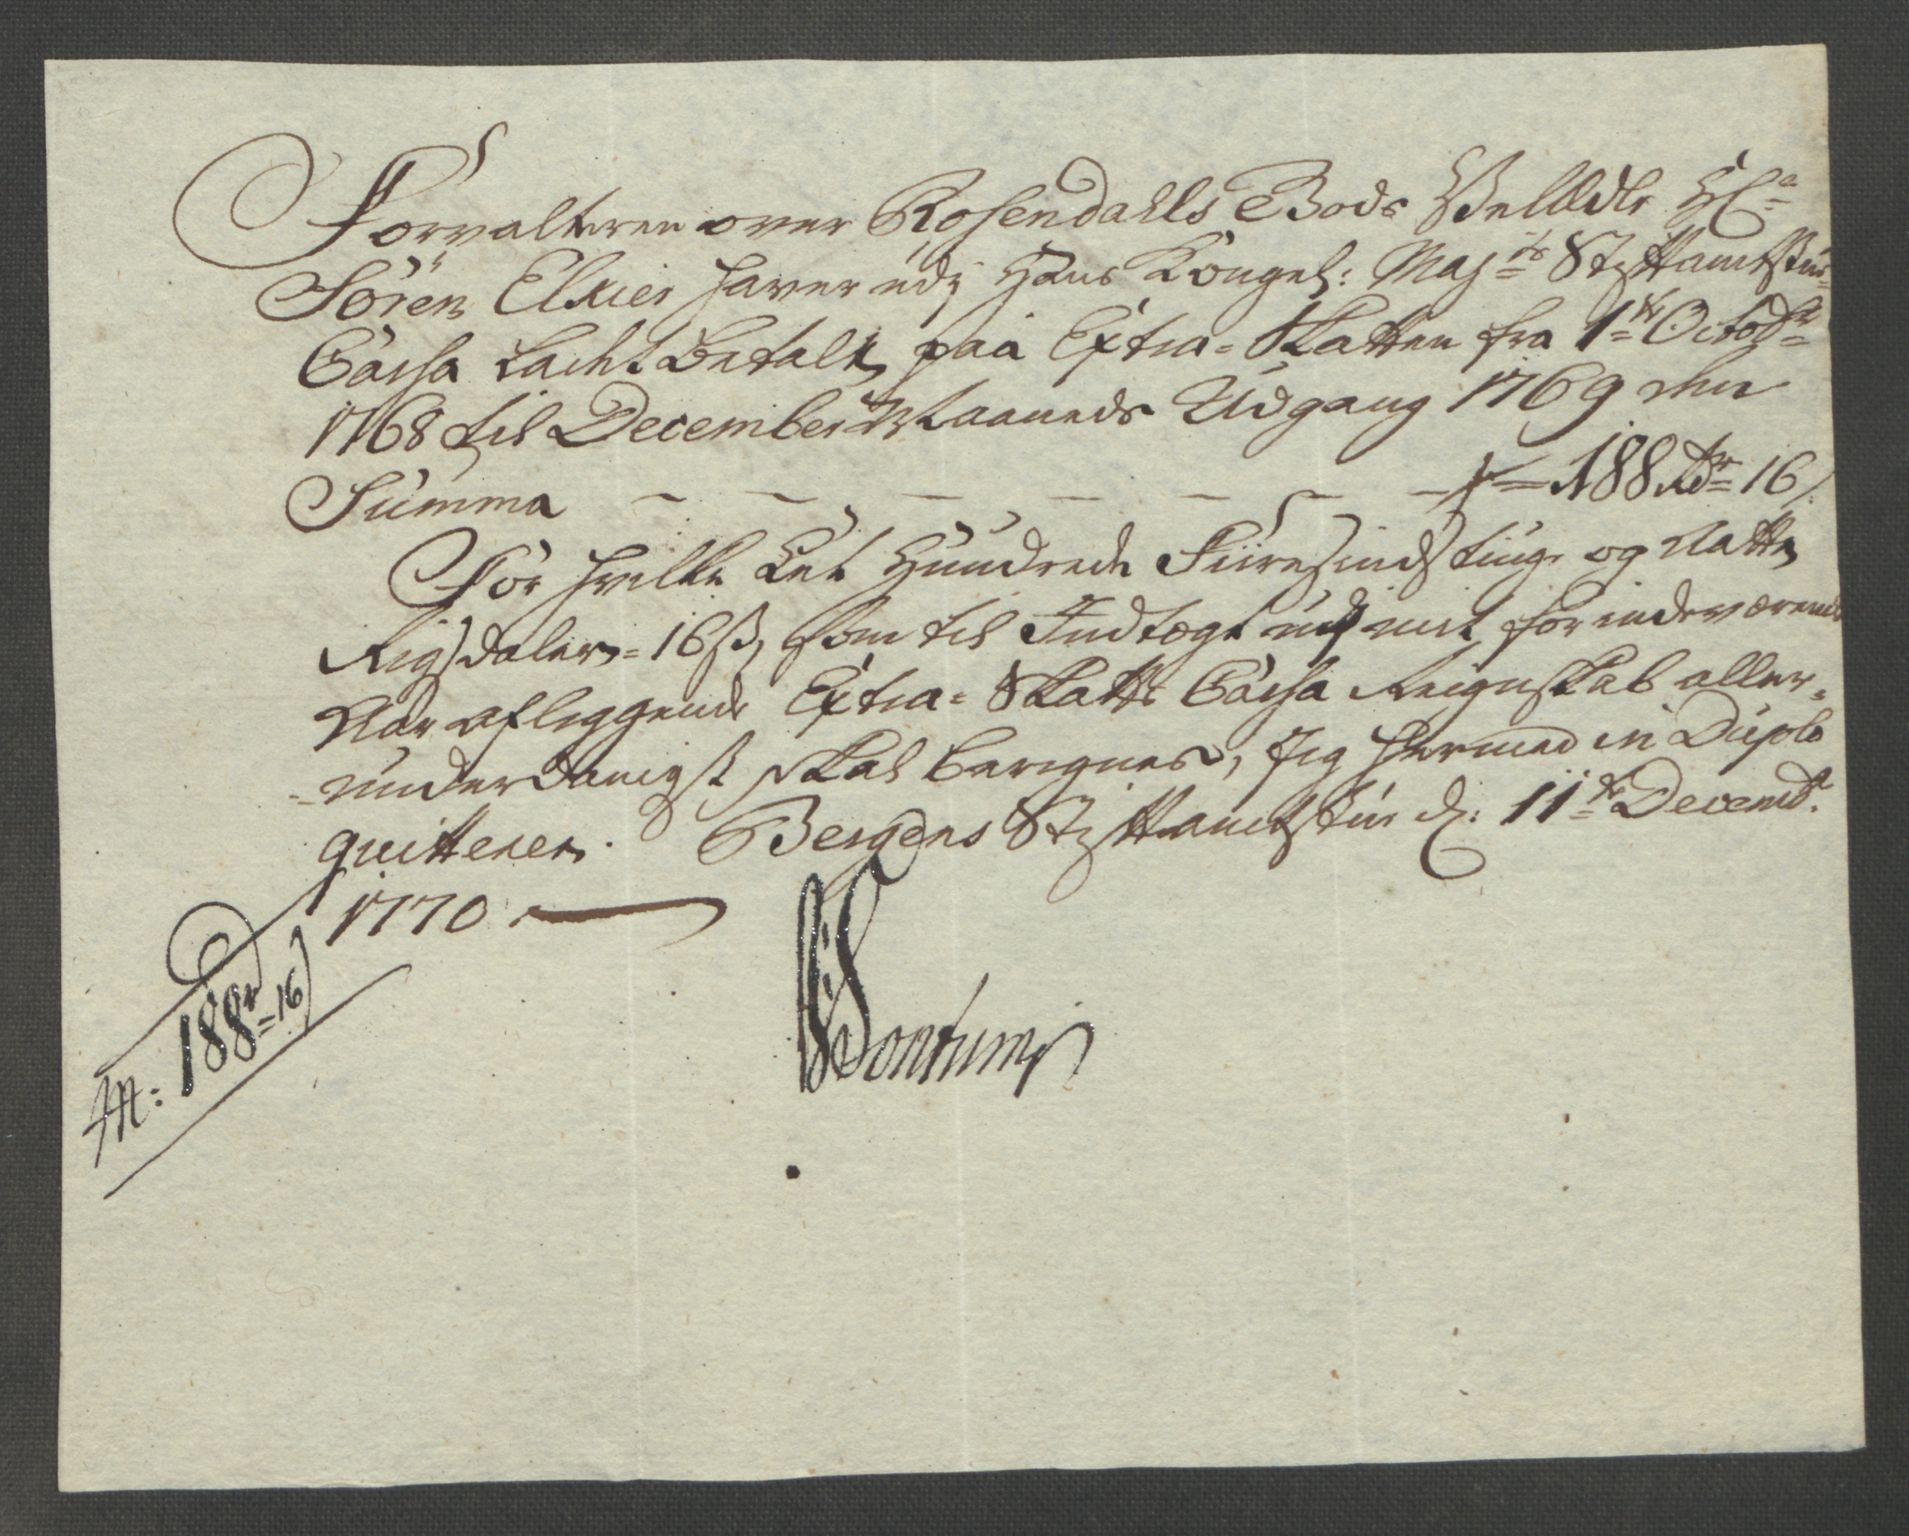 Forvalteren over Rosendahls Gods VelÆdle Hr.
Søren Elster haver udj Hans Kongel: Maj:ts Stiftamtstue
Cassa ladet betale, paa Extra-Skatten fra 1te Octobr
1768 til December Maaneds Udgang 1769 den
Summa - - - - - - - 188 Rdr 16 ß
For hvilke Eet Hundrede Fiiresindstiuge og Aatte
Rigsdaler 16 ß, som til Indtægt udj mit for indeværende
Aar aflæggende Extra-Skatts Cassa Reignskab aller-
-underdanigst skal beregnes, Jeg hermed in Duplo
quitterer. Bergens Stiftamtstue d: 11te Decembr
1770
188r 16
Fontum